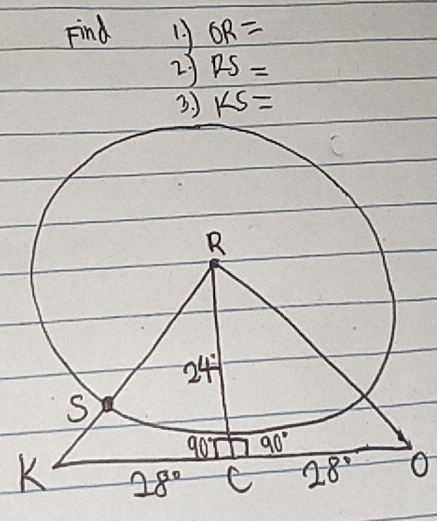 Find 1.) OR =
2.) RS =
3.) KS =
R
24
S
90° 90°
K 28° C 28° O